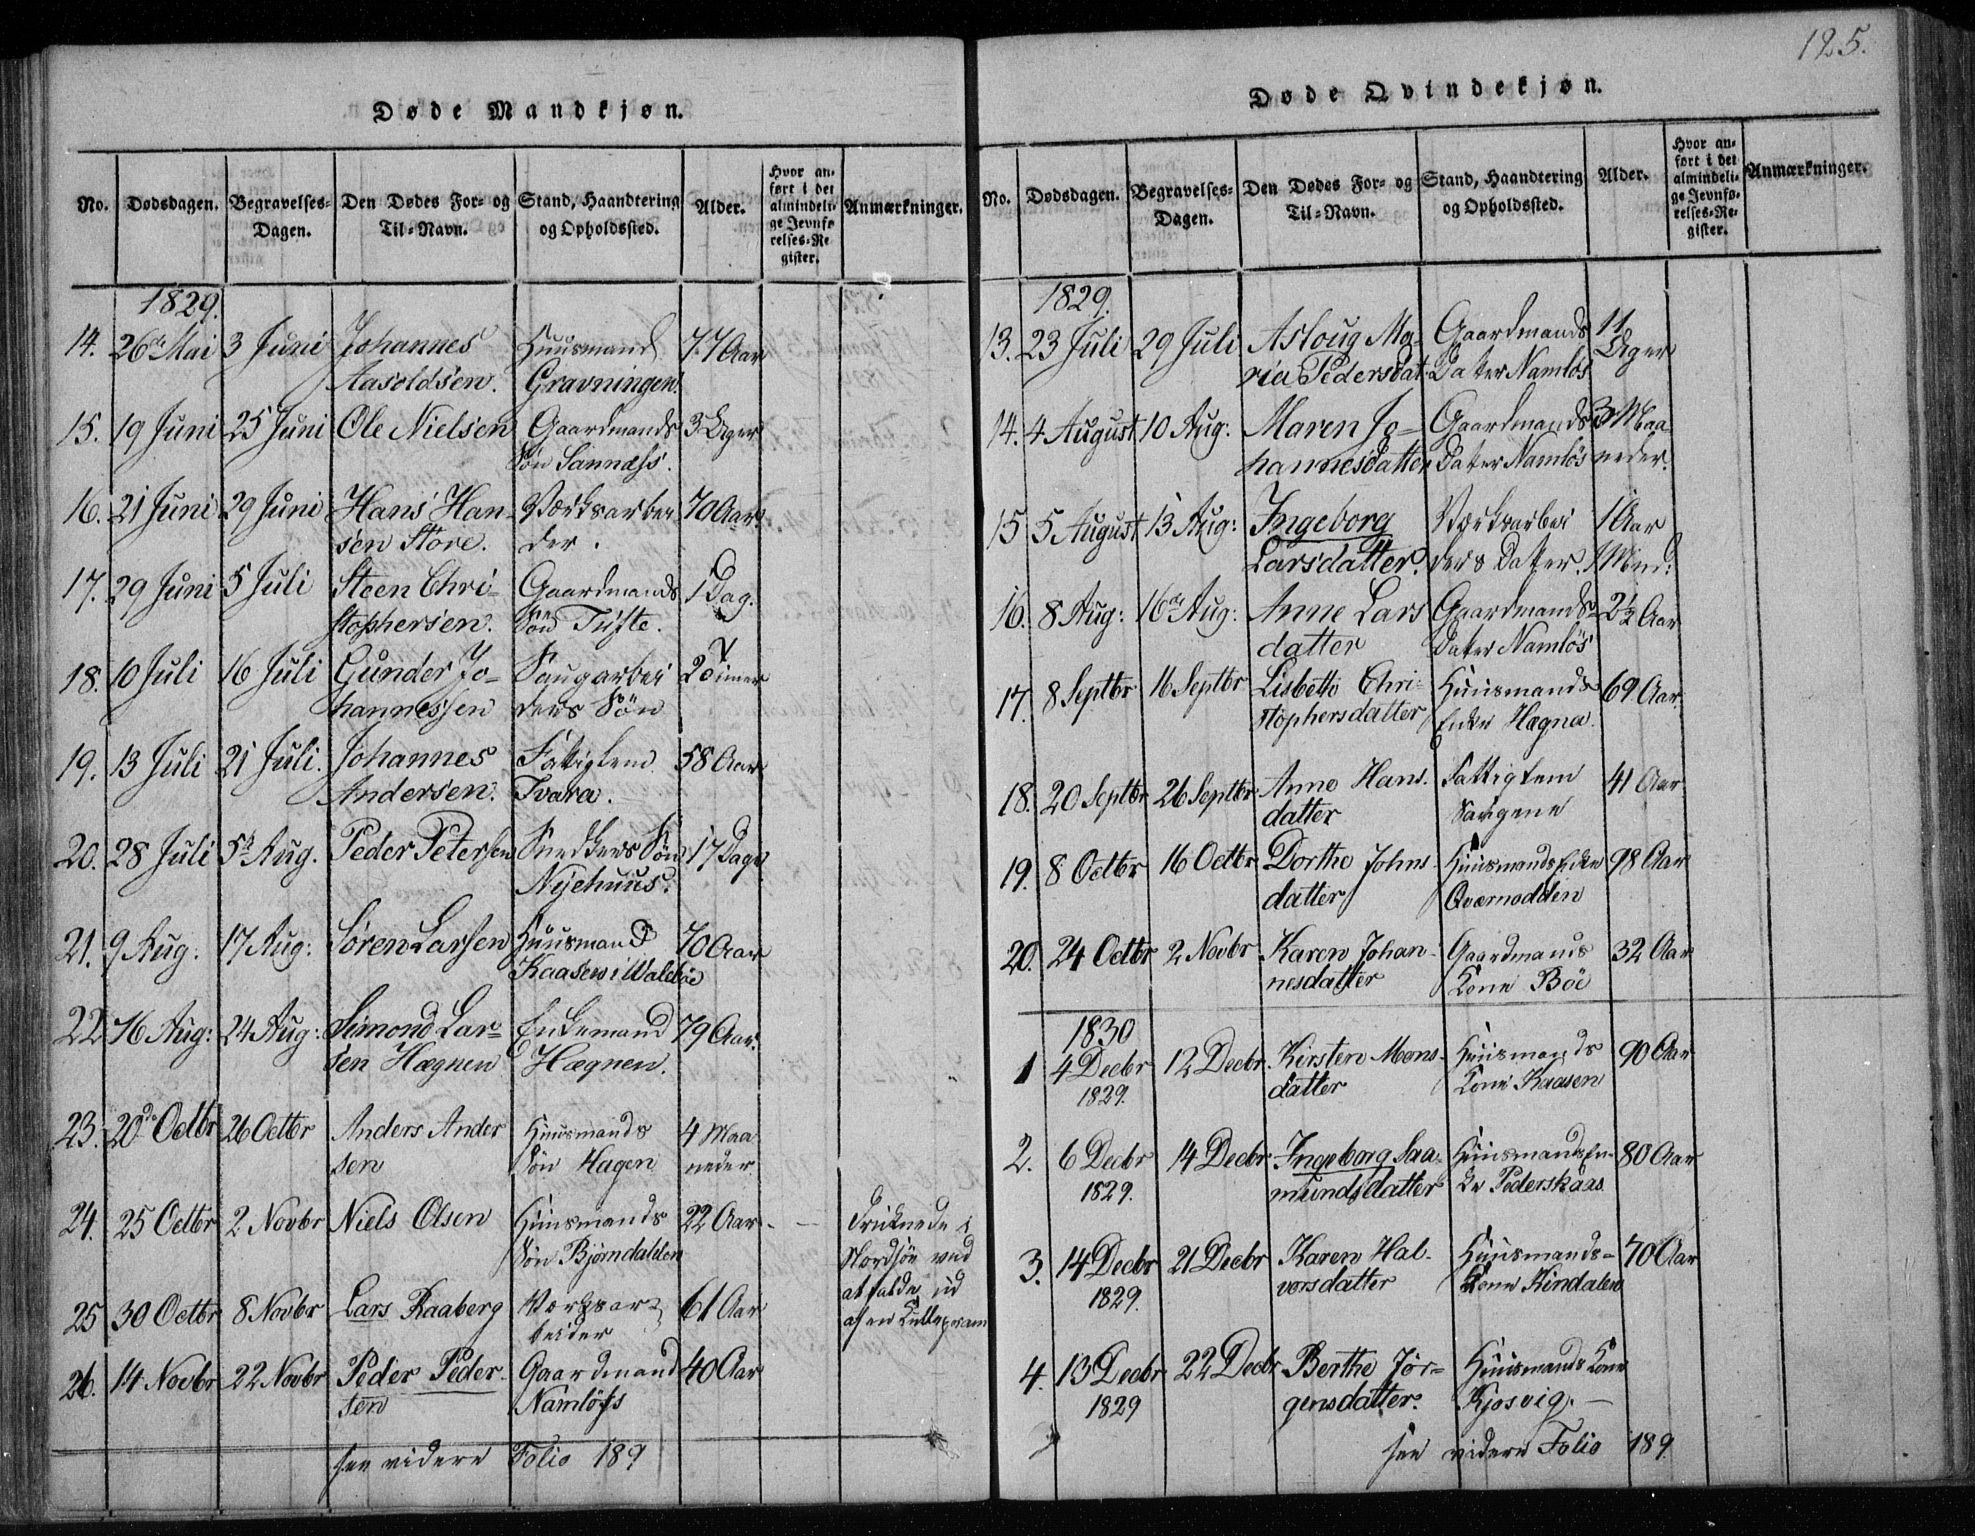 125.
Døde Mandkjøn.
No. Dødsdagen. Begravelses-Dagen. Den Dødes For- og Til-Navn. Stand, Haandtering og Opholdssted. Alder. Hvor anført i det almindelige Jevnførelses-Register. Anmærkninger.
1829.
14. 26de Mai 3 Juni Johannes Huusmand 77 Aar
Aasoldsen. Gravningen.
15. 19 Juni 25 Juni Ole Nielsen Gaardmands 3 Uger
Søn Sannæss.
16. 21 Juni 29 Juni Hans Han- Værksarbei 70 Aar
sen Store. der.
17. 29 Juni 5 Juli Steen Chri- Gaardmands 1 Dag.
stophersen. Søn Tufte.
18. 10 Juli 16 Juli Gunder Jo- Saugarbei 2 Timer
hannessen ders Søn
19. 13 Juli 21 Juli. Johannes Fattiglem 58 Aar
Andersen. Tvara.
20. 28 Juli 5te Aug. Peder Petersen Snedkers Søn 17 Dage
Nyehuus.
21. 9 Aug. 17 Aug: Søren Larsen Huusmand 70 Aar
Kaasen i Waleböe
22 16 Aug: 24 Aug: Simond Lar- Enkemand 79 Aar.
sen Hægnen Hægnen.
23. 20de Octbr 26 Octbr Anders Ander Huusmands 4 Maa
sen Søn Hagen neder
24. 25 Octbr 2 Novbr Niels Olsen Huusmands 22 Aar - - Druknede i
Søn Bjørndahlen Nordsjøe ved
at falde ud
25 30 Octbr 8 Novbr Lars Raaberg Værksar- 61 Aar af en Kullepram
beider
26. 14 Novbr 22 Novbr Peder Peder- Gaardmand 40 Aar
sen Namløss
see videre Folio 189
Døde Qvindekjøn.
No. Dødsdagen. Begravelses-Dagen. Den Dødes For- og Til-Navn. Stand, Haandtering og Opholdssted. Alder. Hvor anført i det almindelige Jevnførelses-Register. Anmærkninger.
1829.
13. 23 Juli 29 Juli Asloug Ma- Gaardmands 11
ria Pedersdat. Dater Namløs Uger
14. 4 August 10 Aug: Maren Jo- Gaardmands 3 Maa
hannesdatter Dater Namløs neder.
15 5 August 13 Aug: Ingeborg Værksarbei 1 Aar
Larsdatter. ders Datter.
16. 8 Aug: 16de Aug: Anne Lars Gaardmands 2½ Aar
datter Dater Namløs
17. 8 Septbr 16 Septbr Lisbeth Chri- Huusmands 69 Aar.
stophersdatter Enke Hægna.
18. 20 Septbr 26 Septbr Anne Hans- Fattiglem 41 Aar.
datter
19. 8 Octbr 16 Octbr Dorthe Johns- Huusmands Enke 98 Aar
datter Qværnodden
20. 24 Octbr 2 Novbr Karen Johan- Gaardmands 32 Aar
nesdatter Kone Böe
1830
1 4 Decbr 12 Decbr. Kirsten Mons- Huusmands 90 Aar
1829. datter Kone Kaasen
2. 6 Decbr 14 Decbr Ingeborg Saa- Huusmands En- 80 Aar
1829. mundsdatter ke Pederskaas
3. 14 Decbr 21 Decbr Karen Hal- Huusmands- 70 Aar
1829. vorsdatter Kone Kindalen
4. 13 Decbr 22 Decbr Berthe Jör- Huusmands Kone
1829 gensdatter. Kjosvig. -
see videre Folio 189.